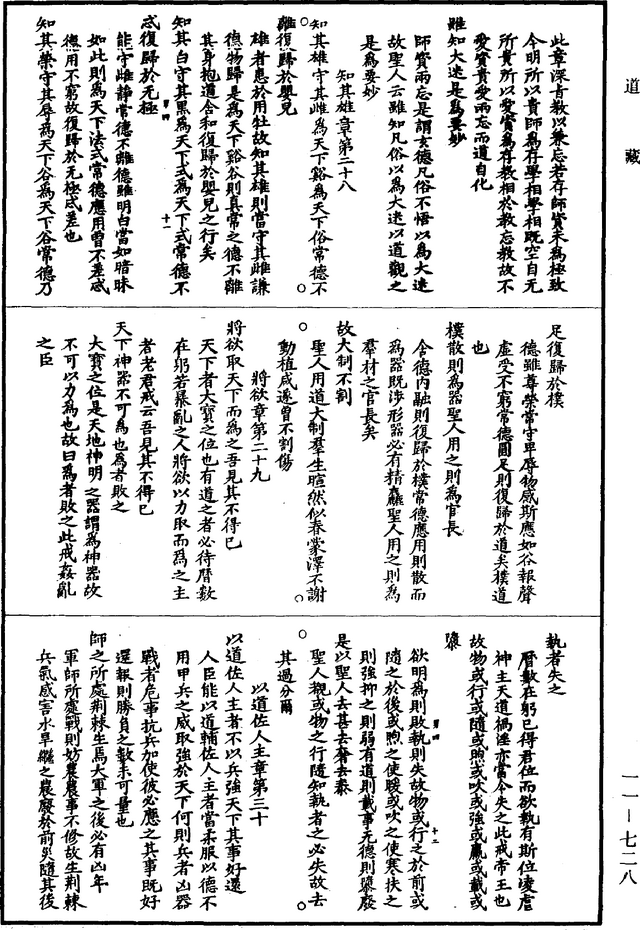 道藏
此章深旨教以兼忘若存師資未為極致
今明所以貴師為存學相學相既空自无
所貴所以愛資為存教相於教忘教故不
愛資貴愛兩忘而道自化
雖知大迷是為要妙
師資兩忘是謂玄德凡俗不悟以為大迷
故聖人云雖知凡俗以為大迷以道觀之
是為要妙
知其雄章第二十八
知其雄守其雌為天下谿為天下俗常德不
離復歸於嬰兒
雄者患於用牡故知其雄則當守其雌謙
德物歸是為天下谿谷則真常之德不離
其身抱道含和復歸於嬰兒之行矣
知其白守其黑為天下式為天下式常德不
忒復歸於无極
能守雌靜常德不離德雖明白當如暗昧
如此則為天下法式常德應用曾不差忒
德用不窮故復歸於无極忒差也
知其榮守其辱為天下谷為天下谷常德乃
足復歸於樸
德雖尊榮常守卑辱物感斯應如谷報聲
虛受不窮常德圓足則復歸於道矣樸道
也
樸散則為器聖人用之則為官長
含德內融則復歸於樸常德應用則散而
為器既涉形器必有精麤聖人用之則為
羣材之官長矣
故大制不割
聖人用道大制羣生暄然似春蒙澤不謝
動植咸遂曾不割傷
將欲章第二十九
將欲取天下而為之吾見其不得已
天下者大寶之位也有道之者必待曆數
在躬若暴亂之人將欲以力取而為之主
者老君戒云吾見其不得已
天下神器不可為也為者敗之
大寶之位是天地神明之器謂為神器故
不可以力為也故曰為者敗之此戒姦亂
之臣
執者失之
曆數在躬已得君位而欲執有斯位凌虐
神主天道禍淫亦當令失之此戒帝王也
故物或行或隨或煦或吹或強或羸或載或
隳
欲明為則敗執則失故物或行之於前或
隨之於後或煦之使暖或吹之使寒扶之
則強抑之則弱有道則載事无德則隳廢
是以聖人去甚去奢去泰
聖人觀或物之行隨知執者之必失故去
其過分爾
以道佐人主章第三十
以道佐人主者不以兵強天下其事好還
人臣能以道輔佐人主者當柔服以德不
用甲兵之威取強於天下何則兵者凶器
戰者危事抗兵加使彼必應之其事既好
還報則勝負之數未可量也
師之所處荆棘生焉大軍之後必有凶年
軍師所處戰則妨農農事不修故生荆棘
兵氣感害水旱繼之農廢於前災隨其後
一一－七二八